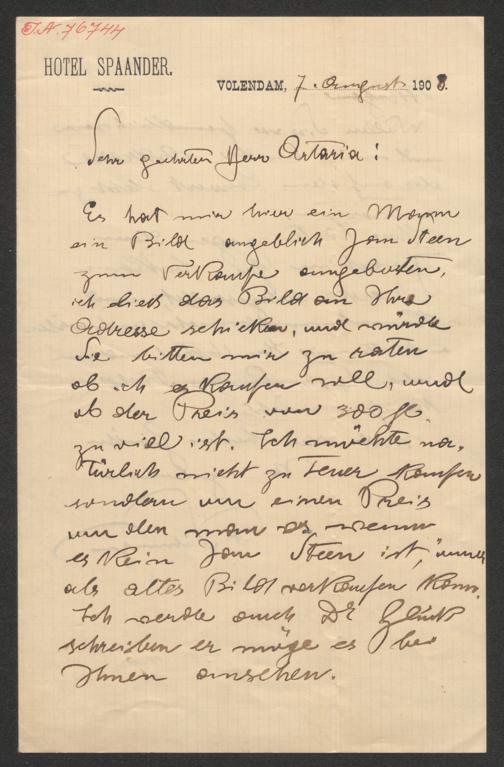 I.N. 76744
HOTEL SPAANDER.
VOLENDAM, 7. August 1908.
Sehr geehrter Herr Artaria!
Es hat mir hier ein Mann
ein Bild angeblich Jan Steen
zum Verkaufe angeboten,
ich ließ das Bild an Ihre
Adresse schicken, und würde
Sie bitten mir zu raten
ob ich es kaufen soll, und
ob der Preis von 300 fl.
zu viel ist. Ich möchte na-
türlich nicht zu teuer kaufen
sondern um einen Preis
um den man es wenn
es kein Jan Steen ist, immer
als altes Bild verkaufen kann.
Ich werde auch Dr Glück
schreiben er möge es bei
Ihnen ansehen.